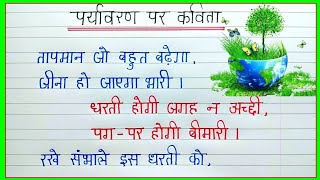 पर्यावरण पर कविता
तापमान जो बहुत बढ़ेगा,
जीना हो जाएगा भारी ।
धरती होगी जगह न अच्छी,
पग-पर होगी बीमारी ।
रखे संभाले इस धरती को,